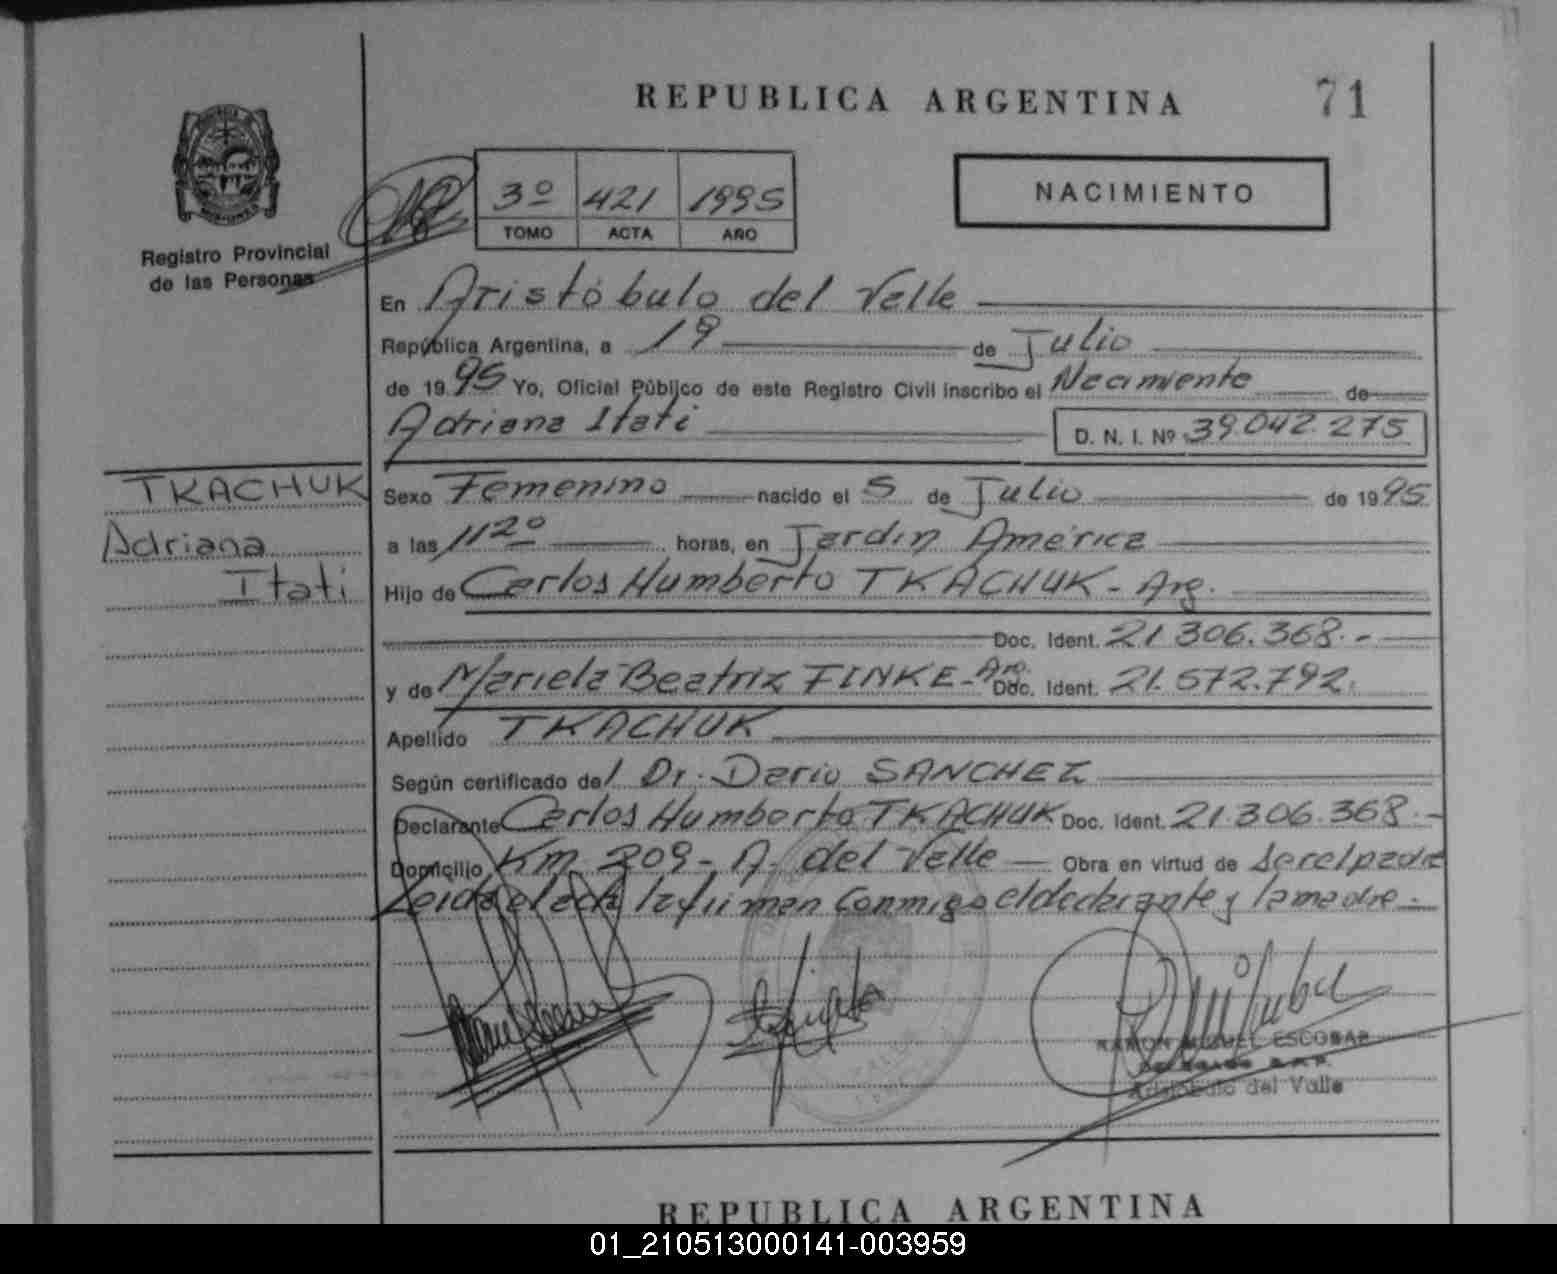 REPUBLICA ARGENTINA
71
3º 421 1995
TOMO ACTA AÑO
NACIMIENTO
Registro Provincial
de las Personas
En Aristóbulo del Valle
República Argentina, a 19 de Julio
de 1995 Yo, Oficial Público de este Registro Civil inscribo el Nacimiento de
Adriana Itati D. N. I. Nº 39.042.275
TKACHUK
Adriana
Itati
Sexo Femenino nacido el 5 de Julio de 1995
a las 1120 horas, en Jardin América
Hijo de Carlos Humberto TKACHUK - Arg.
Doc. Ident. 21.306.368.-
y de Mariela Beatriz FINKE - Arg. Doc. Ident. 21.572.792.
Apellido TKACHUK
Según certificado del Dr. Dario SANCHEZ
Declarante Carlos Humberto TKACHUK Doc. Ident. 21.306.368.-
Domicilio Km. 209 - A. del Valle Obra en virtud de ser el padre
Leida el acta la firman conmigo el declarante y la madre.-
RAMON MIGUEL ESCOBAR
Aristobulo del Valle
REPUBLICA ARGENTINA
01_210513000141-003959